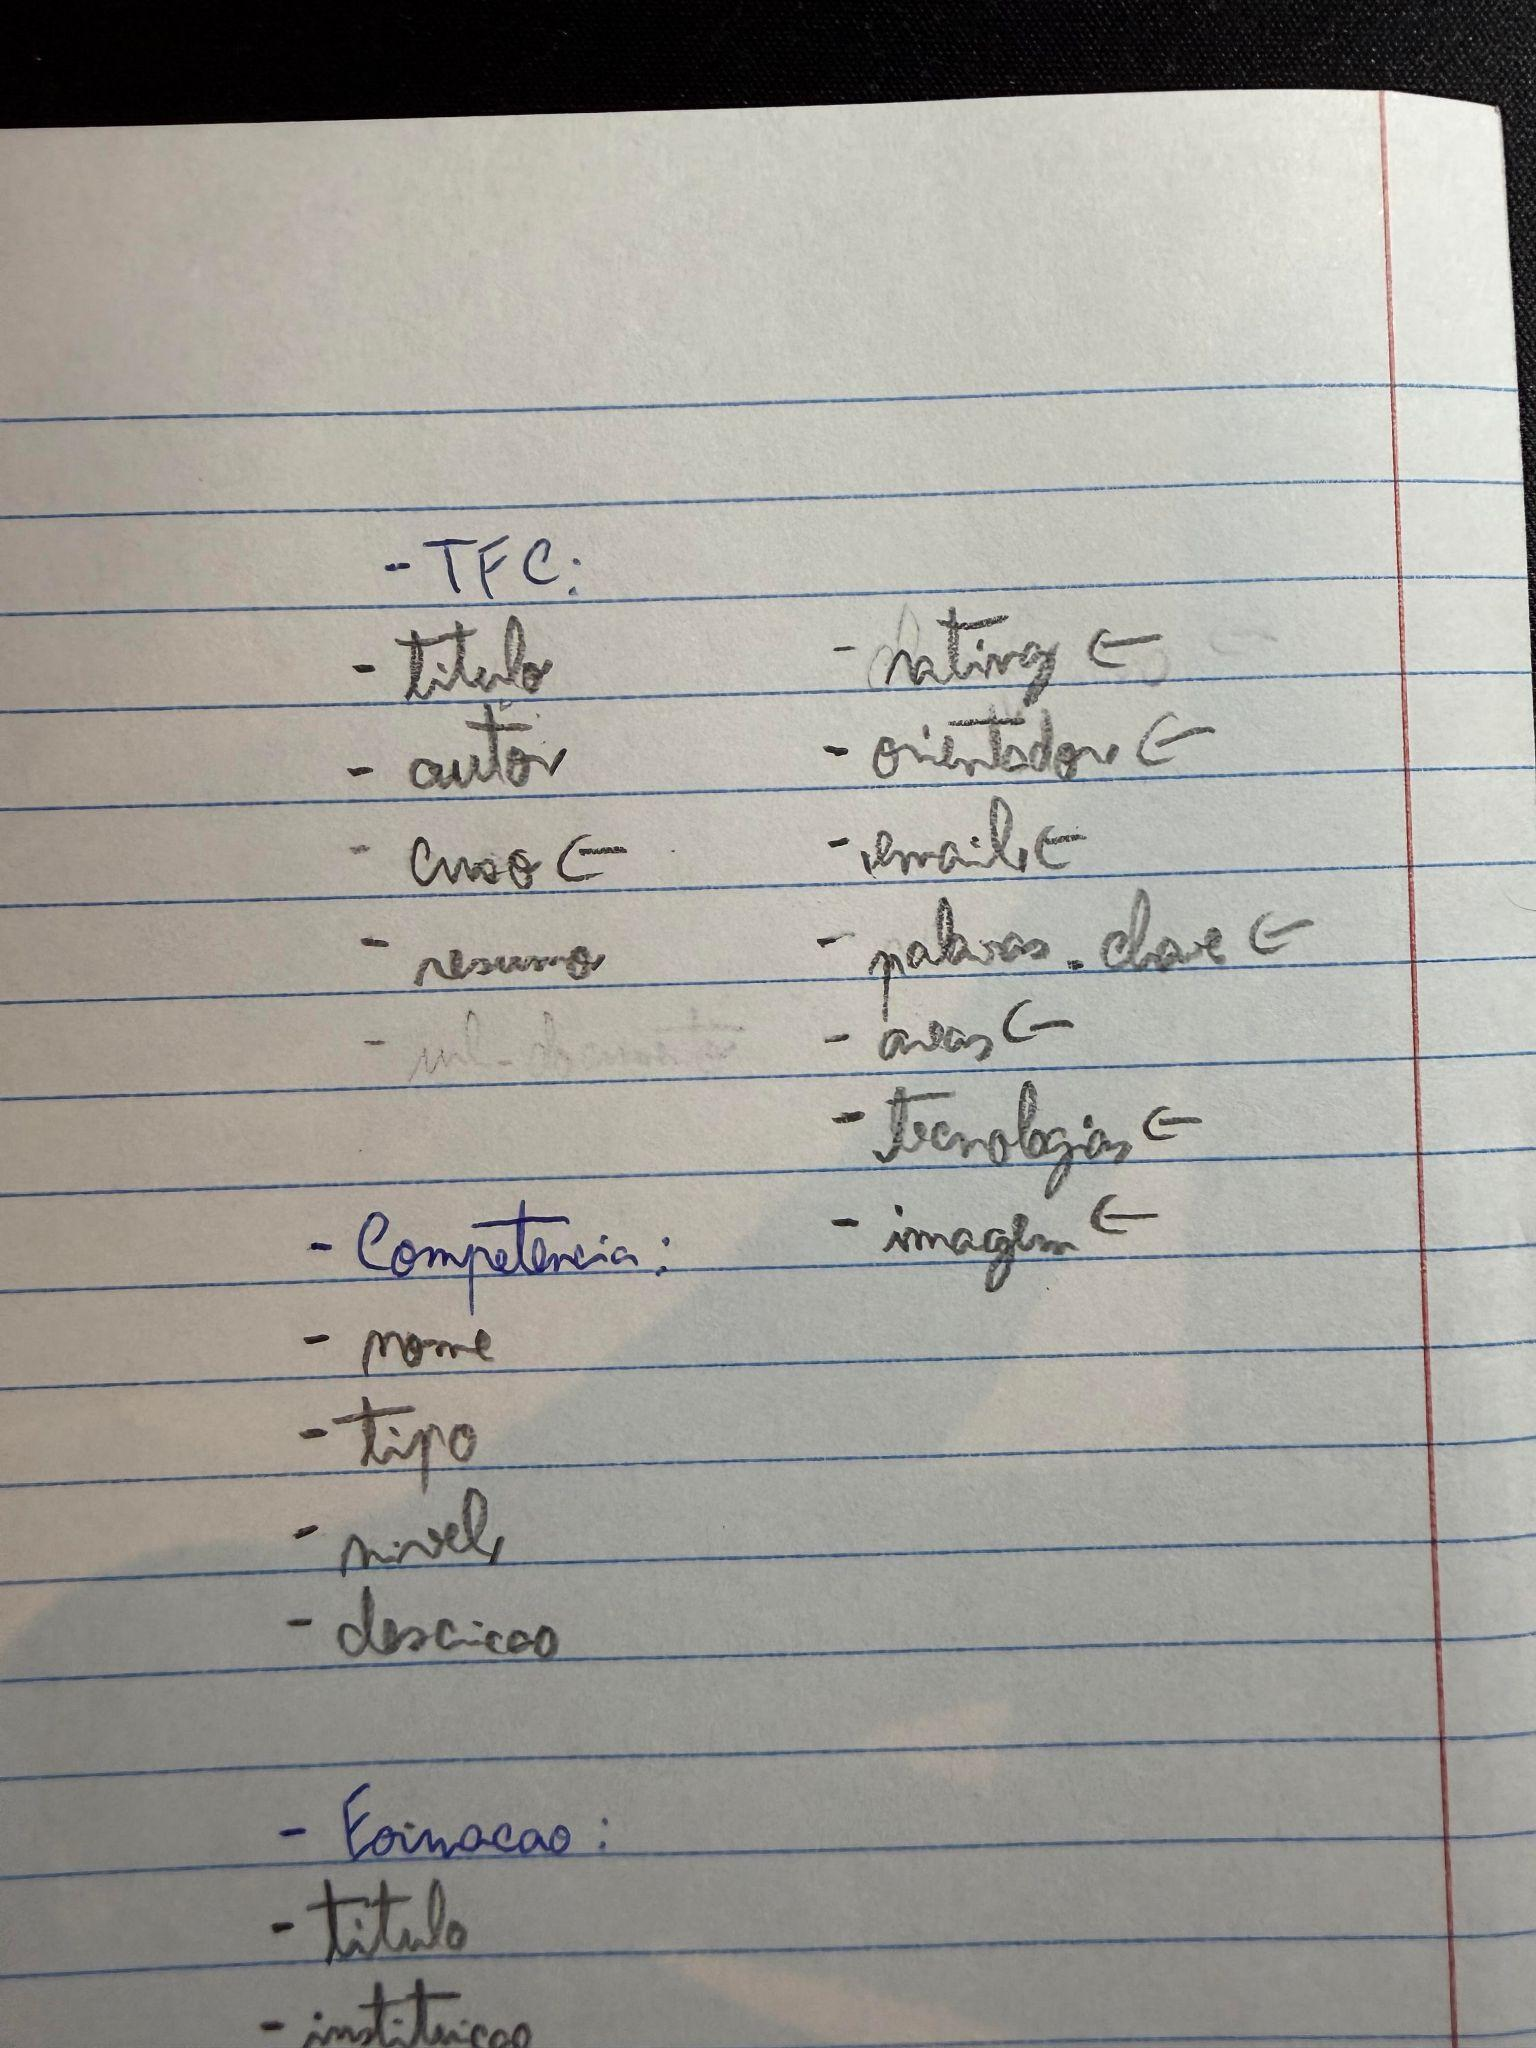 - TFC:
- titulo
- autor
- curso ←
- resumo
- rating ←
- orientador ←
- email ←
- palavras-chave ←
- areas ←
- tecnologias ←
- imagem ←
- Competencia:
- nome
- tipo
- nivel
- descricao
- Formacao:
- titulo
- instituicao